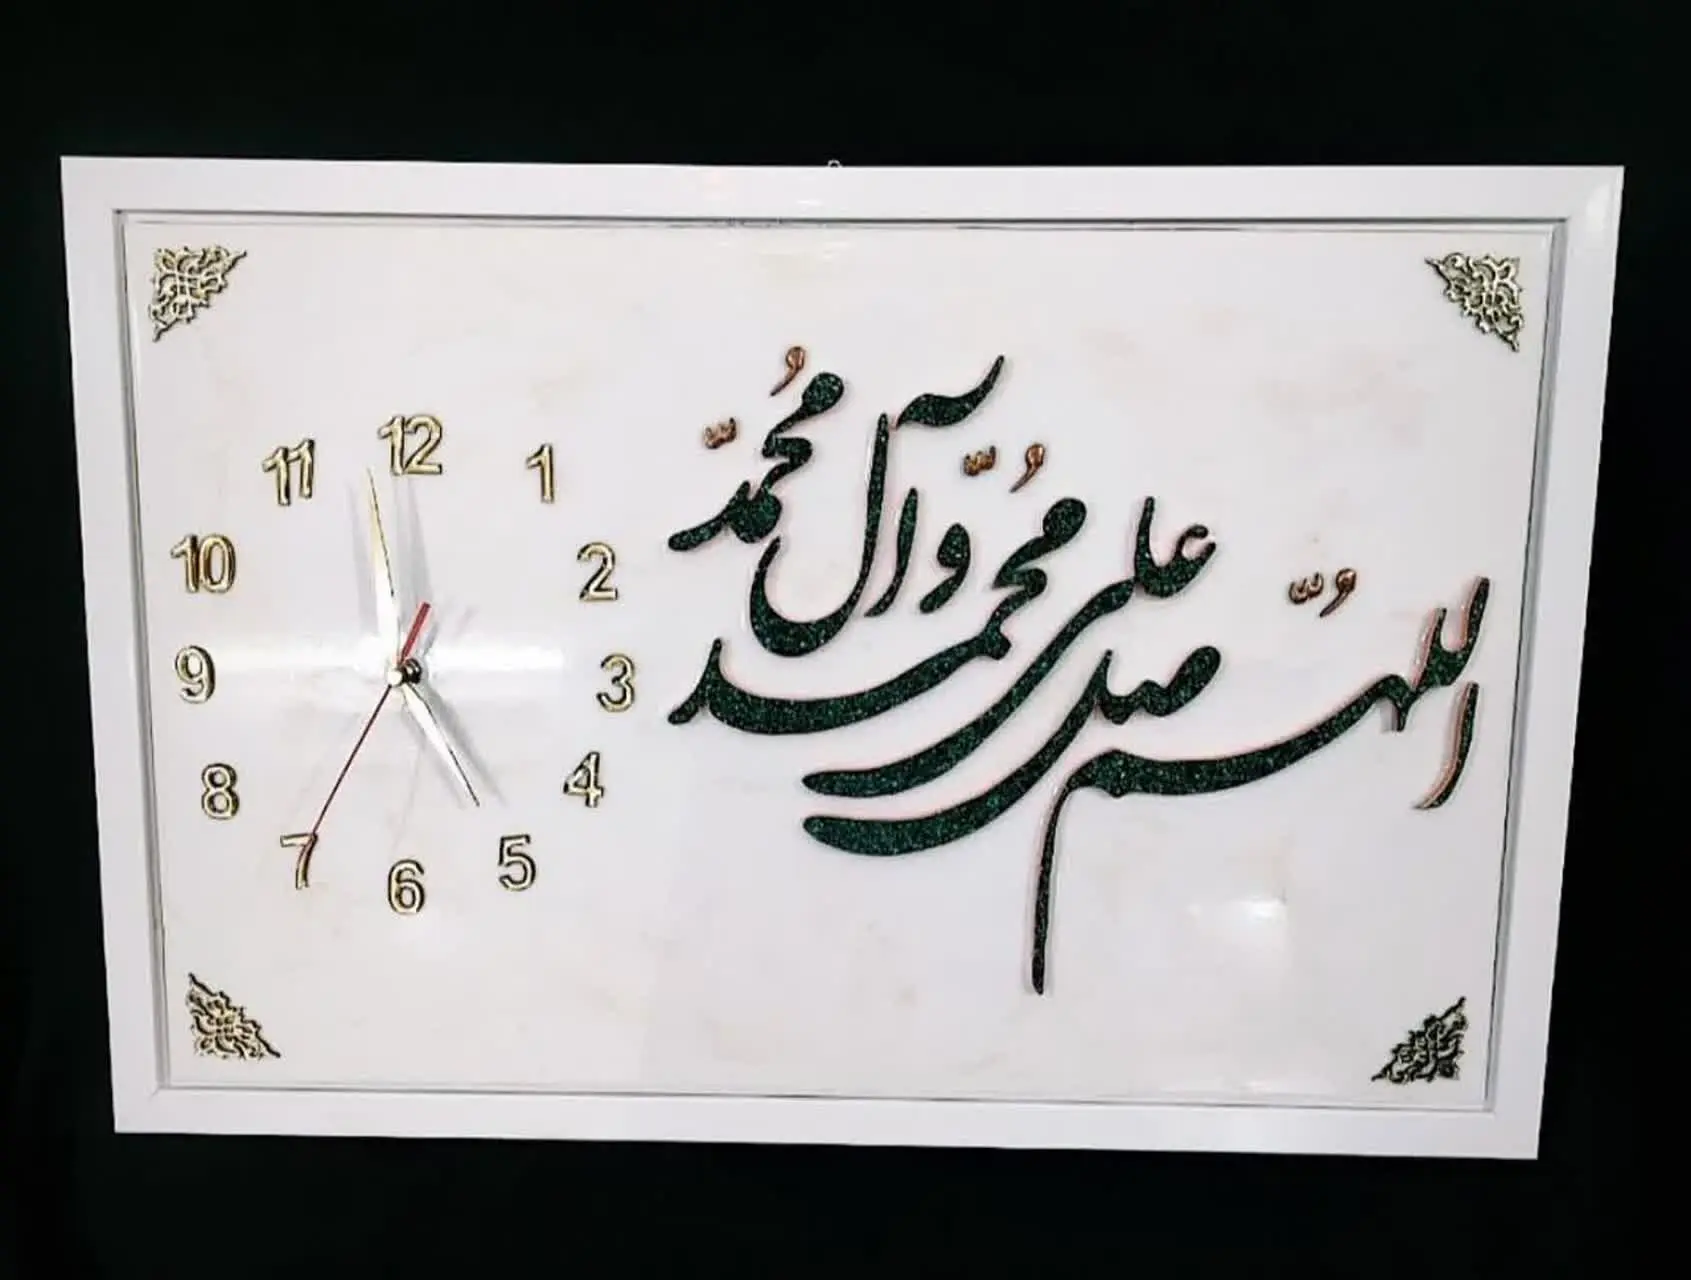 اللهُمّ صل علی مُحمّد وآل مُحمّد
12
1
2
3
4
5
6
7
8
9
10
11